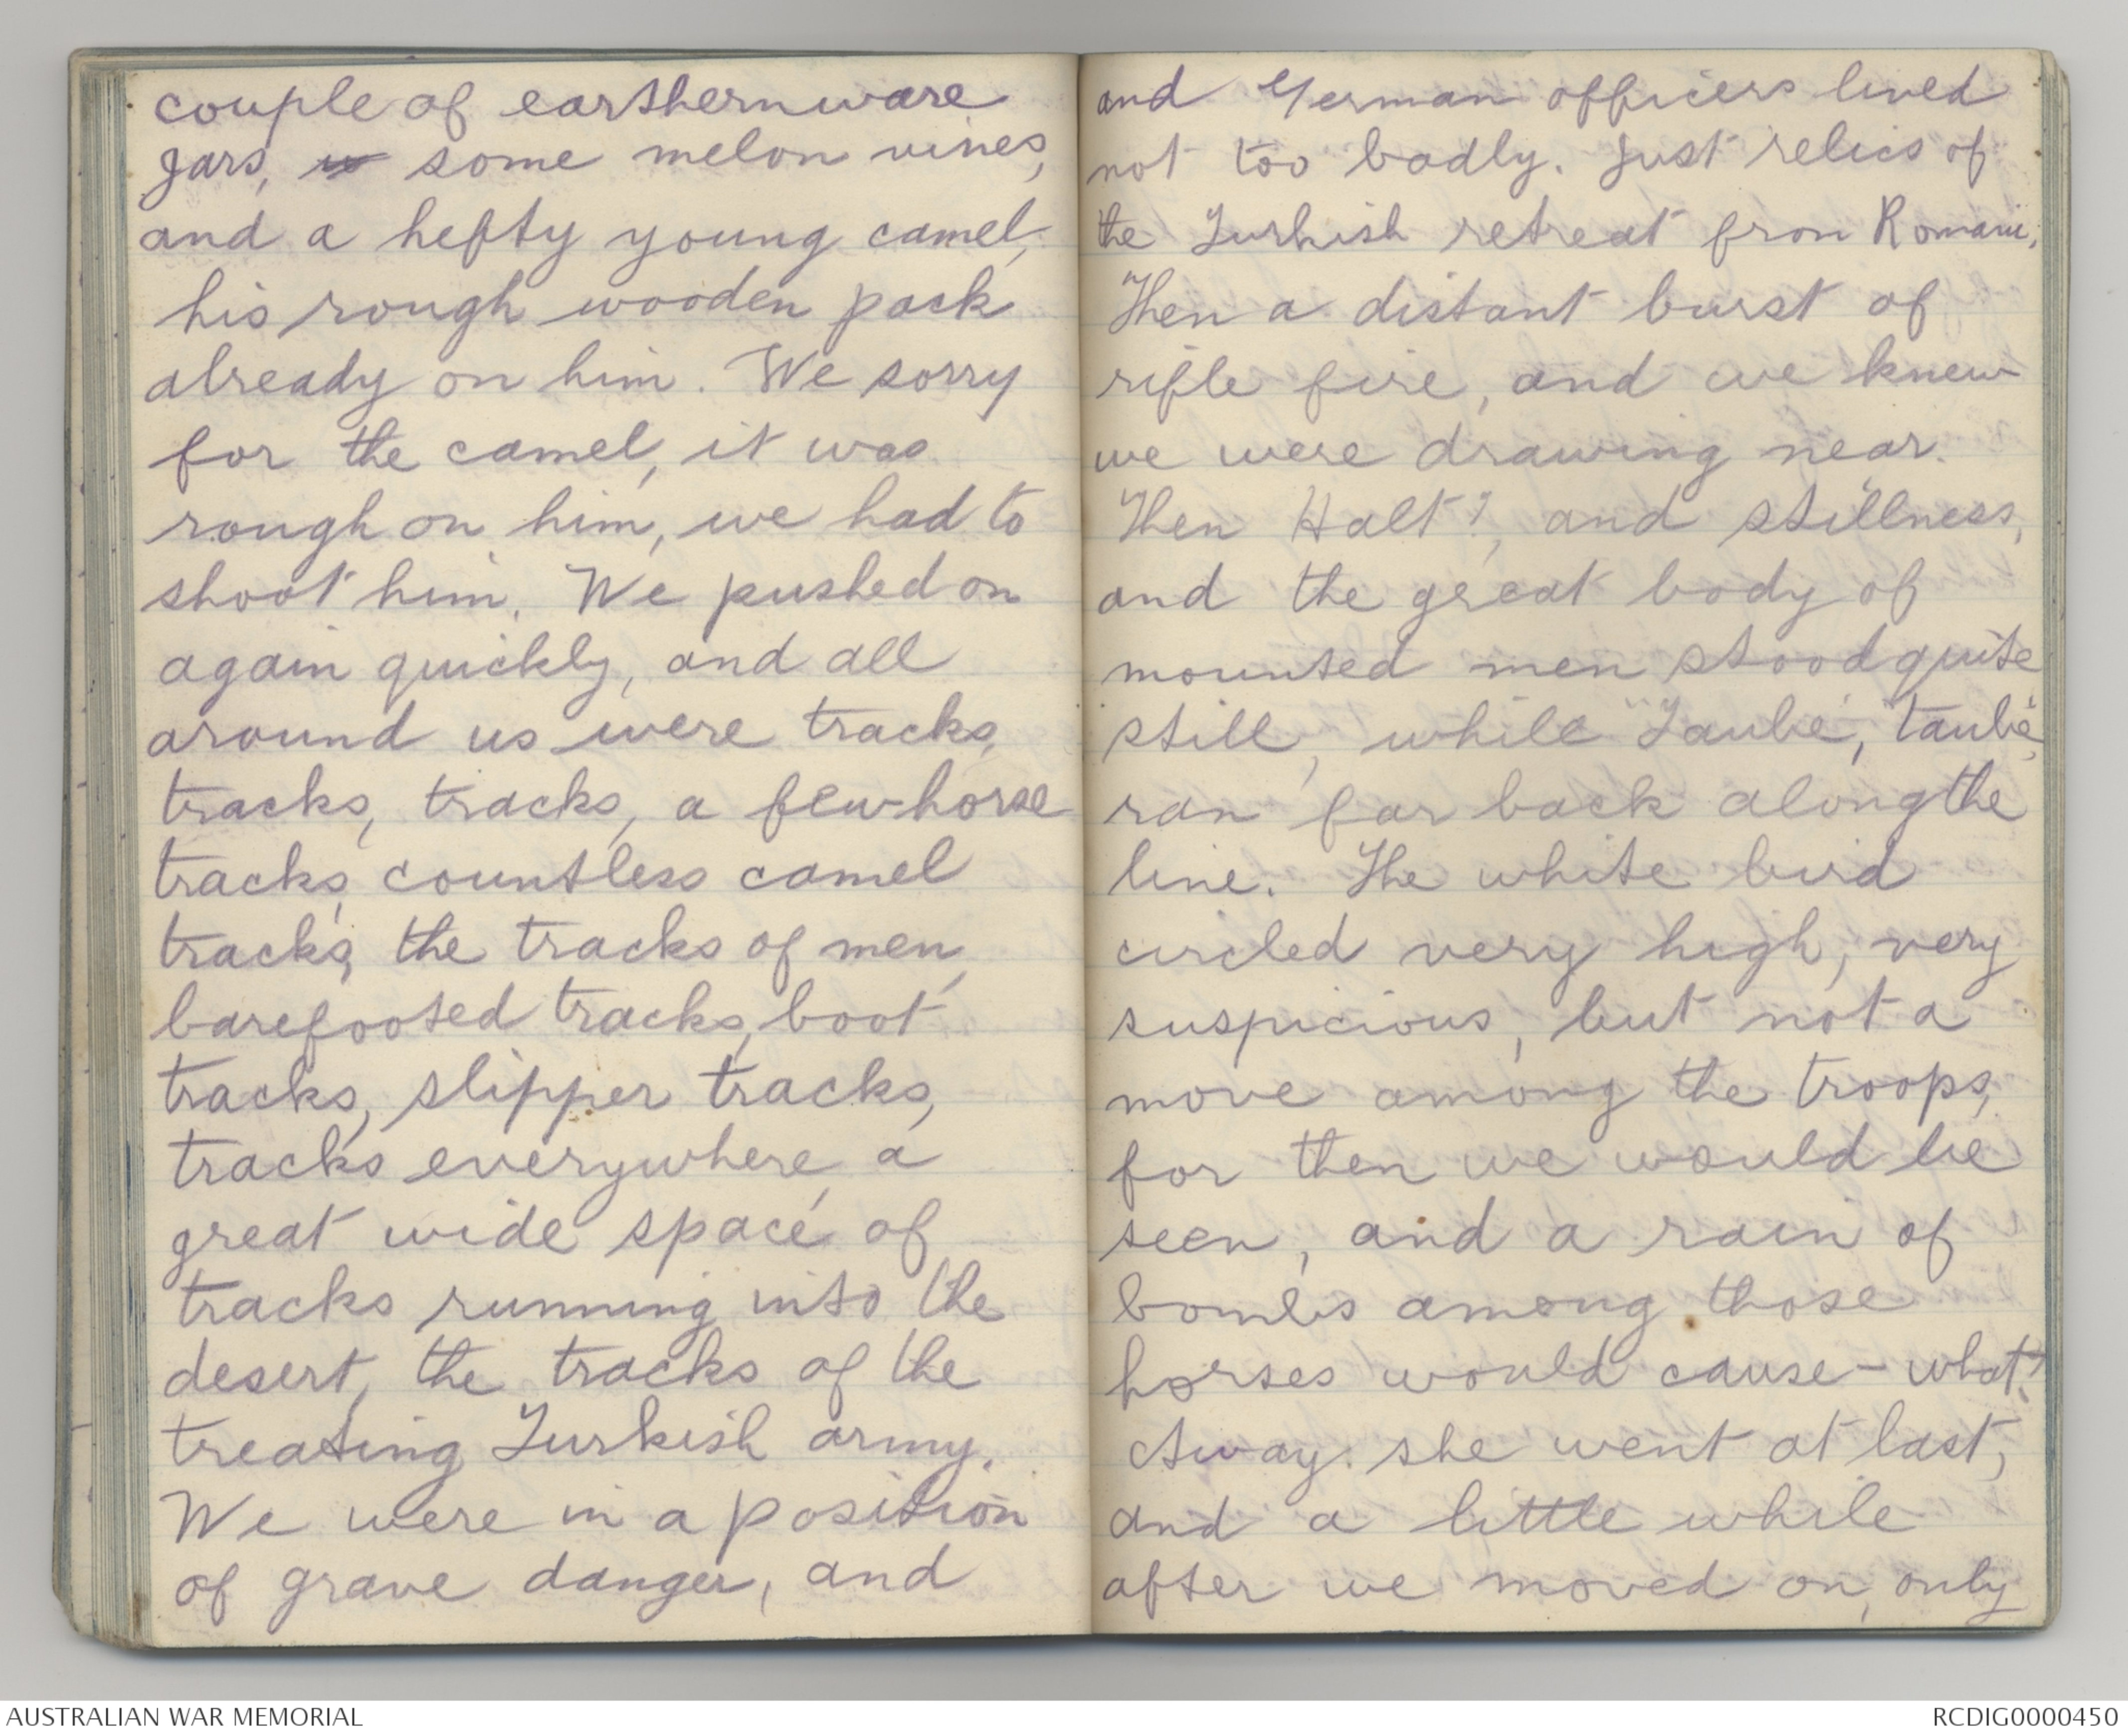 couple of earthernware
jars, some melon vines,
and a hefty young camel,
his rough wooden pack
already on him. We sorry
for the camel, it was
rough on him, we had to
shoot him. We pushed on
again quickly, and all
around us were tracks,
tracks, tracks, a few horse
tracks, countless camel
tracks, the tracks of men,
barefooted tracks, boot
tracks, slipper tracks,
tracks everywhere, a
great wide space of
tracks running into the
desert, the tracks of the
treating Turkish army.
We were in a position
of grave danger, and
and German officers lived
not too badly. Just relics of
the Turkish retreat from Romani.
Then a distant burst of
rifle fire, and we knew
we were drawing near.
Then Halt!, and stillness,
and the great body of
mounted men stood quite
still, while "Taube, taube"
ran far back along the
line. The white bird
circled very high, very
suspicious, but not a
move among the troops,
for then we would be
seen, and a rain of
bombs among those
horses would cause - what?
Away she went at last,
and a little while
after we moved on, only
AUSTRALIAN WAR MEMORIAL
RCDIG0000450